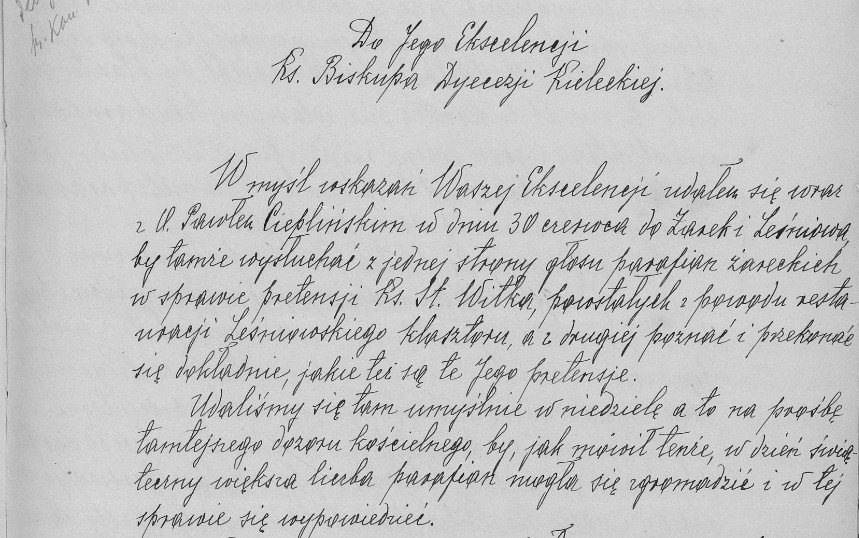 Do Jego Ekscelencji
Ks. Biskupa Dyecezji Kieleckiej.
W myśl wskazań Waszej Ekscelencji udałem się wraz
z O. Pawłem Cieplińskim w dniu 30 czerwca do Żarek i Leśniowa,
by tamże wysłuchać z jednej strony głosu parafian żareckich
w sprawie pretensji Ks. St. Witka, powstałych z powodu resta-
uracji Leśniowskiego klasztoru, a z drugiej poznać i przekonać
się dokładnie, jakie też są te Jego pretensje.
Udaliśmy się tam umyślnie w niedzielę a to na prośbę
tamtejszego dozoru kościelnego, by, jak mówił tenże, w dzień świą-
teczny większa liczba parafian mogła się zgromadzić i w tej
sprawie się wypowiedzieć.